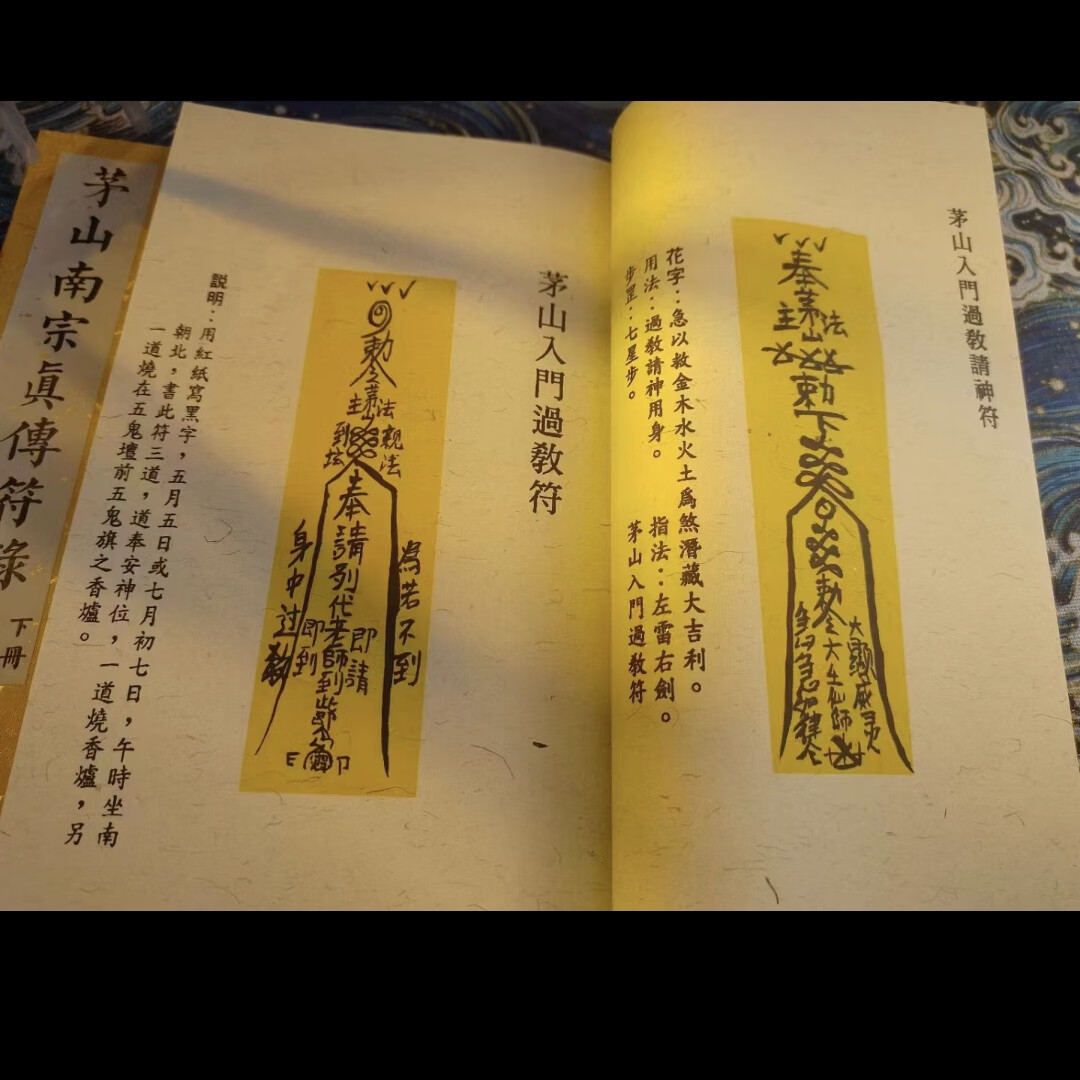 茅山入門過敎請神符
奉茅山法主
勅下
勅令
大顯威灵
大生仙師
花字：急以敎金木水火土爲煞潛藏大吉利。
用法：過敎請神用身。
步罡：七星步。
指法：左雷右劍。
茅山入門過敎符
茅山入門過敎符
勅令
茅山法主
親法
到坛
奉請列代老師到此
即請
即到
為若不到
身中过教
說明：用紅紙寫黑字，五月五日或七月初七日，午時坐南
朝北，書此符三道，道奉安神位，一道燒香爐，另
一道燒在五鬼壇前五鬼旗之香爐。
茅山南宗眞傳符籙
下冊